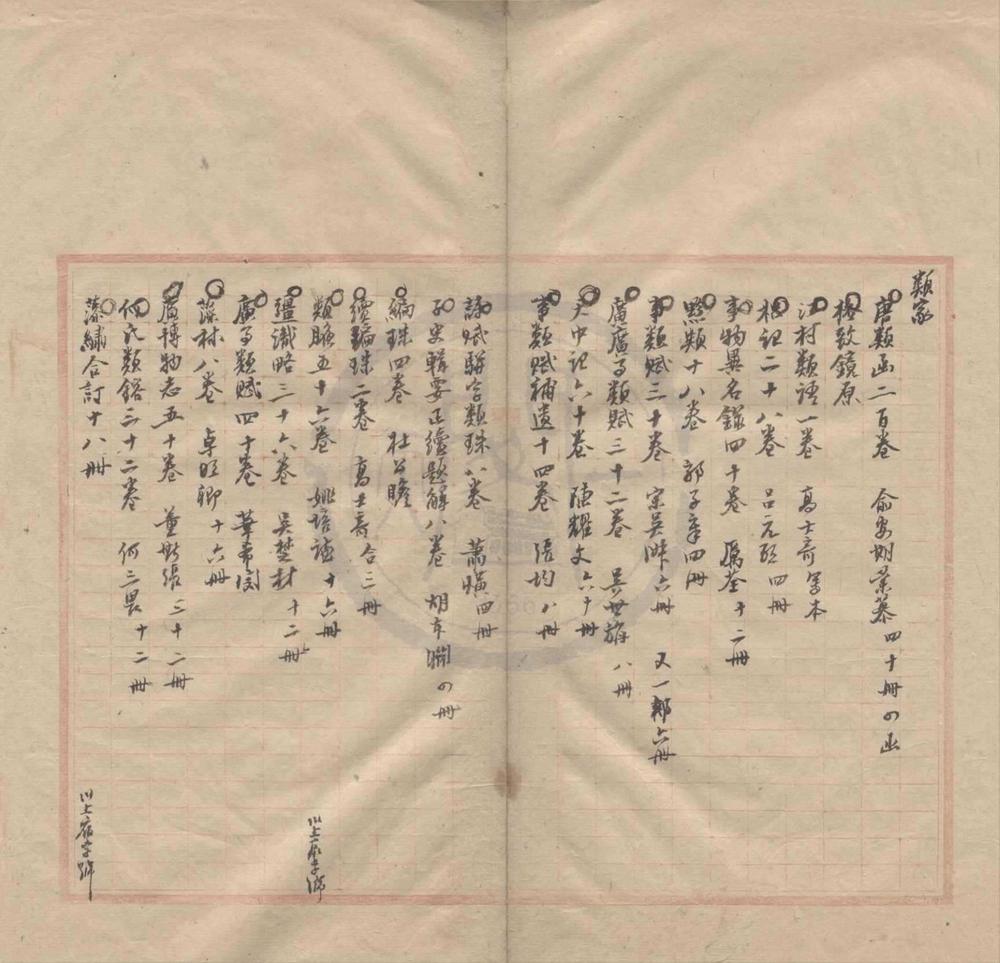 類家
唐類函二百卷 俞安期彙纂 四十冊 四函
格致鏡原
江村類語一卷 高士奇 寫本
樹記二十八卷 呂元 四冊
事物異名錄四十卷 厲荃 十二冊
黔類十八卷 郭子章 四冊
事類賦三十卷 宗吳淑 六冊 又一部六冊
廣廣事類賦三十二卷 吳世旃 八冊
天中記六十卷 陳耀文 六十冊
事類賦補遺十四卷 張均 八冊
詠賦駢字類珠八卷 蕭 四冊
子史輯要正續題解八卷 胡本淵 四冊
編珠四卷 杜公瞻
續編珠二卷 高士奇 合三冊
類腋五十六卷 姚培謙 十六冊
彊識略三十六卷 吳楚材 十二冊
廣事類賦四十卷 華希閔
藻林八卷 卓明卿 十六冊
廣博物志五十卷 董斯張 三十二冊
何氏類鎔三十二卷 何三畏 十二冊
藻繡合訂十八冊
以上 字號
以上 字號